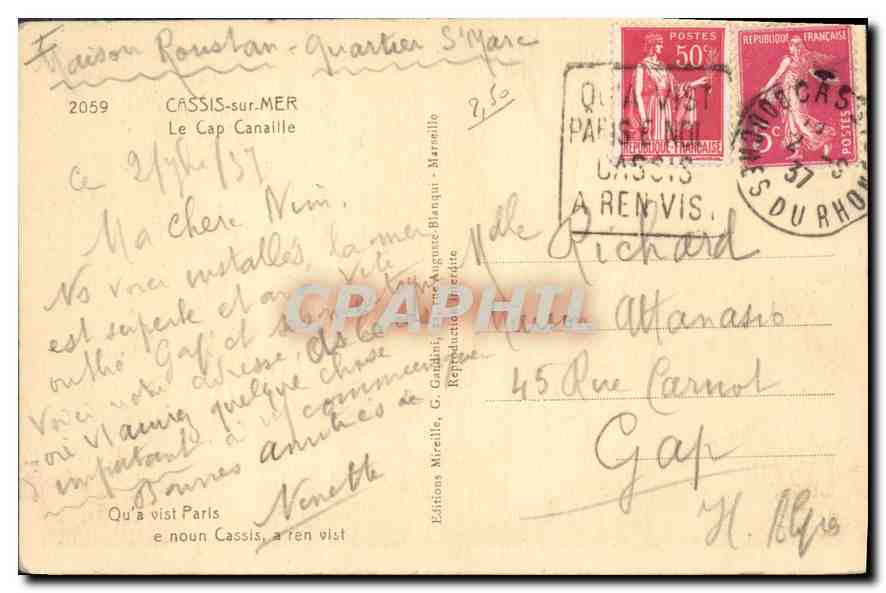 Maison Roustan - Quartier St Marc
2059 CASSIS-sur-MER
Le Cap Canaille
2,50
ce 2/7bre/37
Ma chere Nini.
Ns voici installés, la mer
est superbe et on a vite
oublié Gap et
Voici notre adresse,
quelque chose
d'important à ns communiquer
Bonnes amitiés de
Nenette
Qu'a vist Paris
e noun Cassis, a ren vist
Editions Mireille, G. Gandini, rue Auguste-Blanqui - Marseille
Reproduction Interdite
POSTES
50c
RÉPUBLIQUE-FRANÇAISE
REPUBLIQUE FRANÇAISE
POSTES
QU'A VIST
PARIS E NOU
CASSIS
A REN VIST
CASSIS
37
BOUCHES DU RHONE
Mlle Richard
Maison Attanasio
45 Rue Carnot
Gap
H. Alpes
CPAPHIL